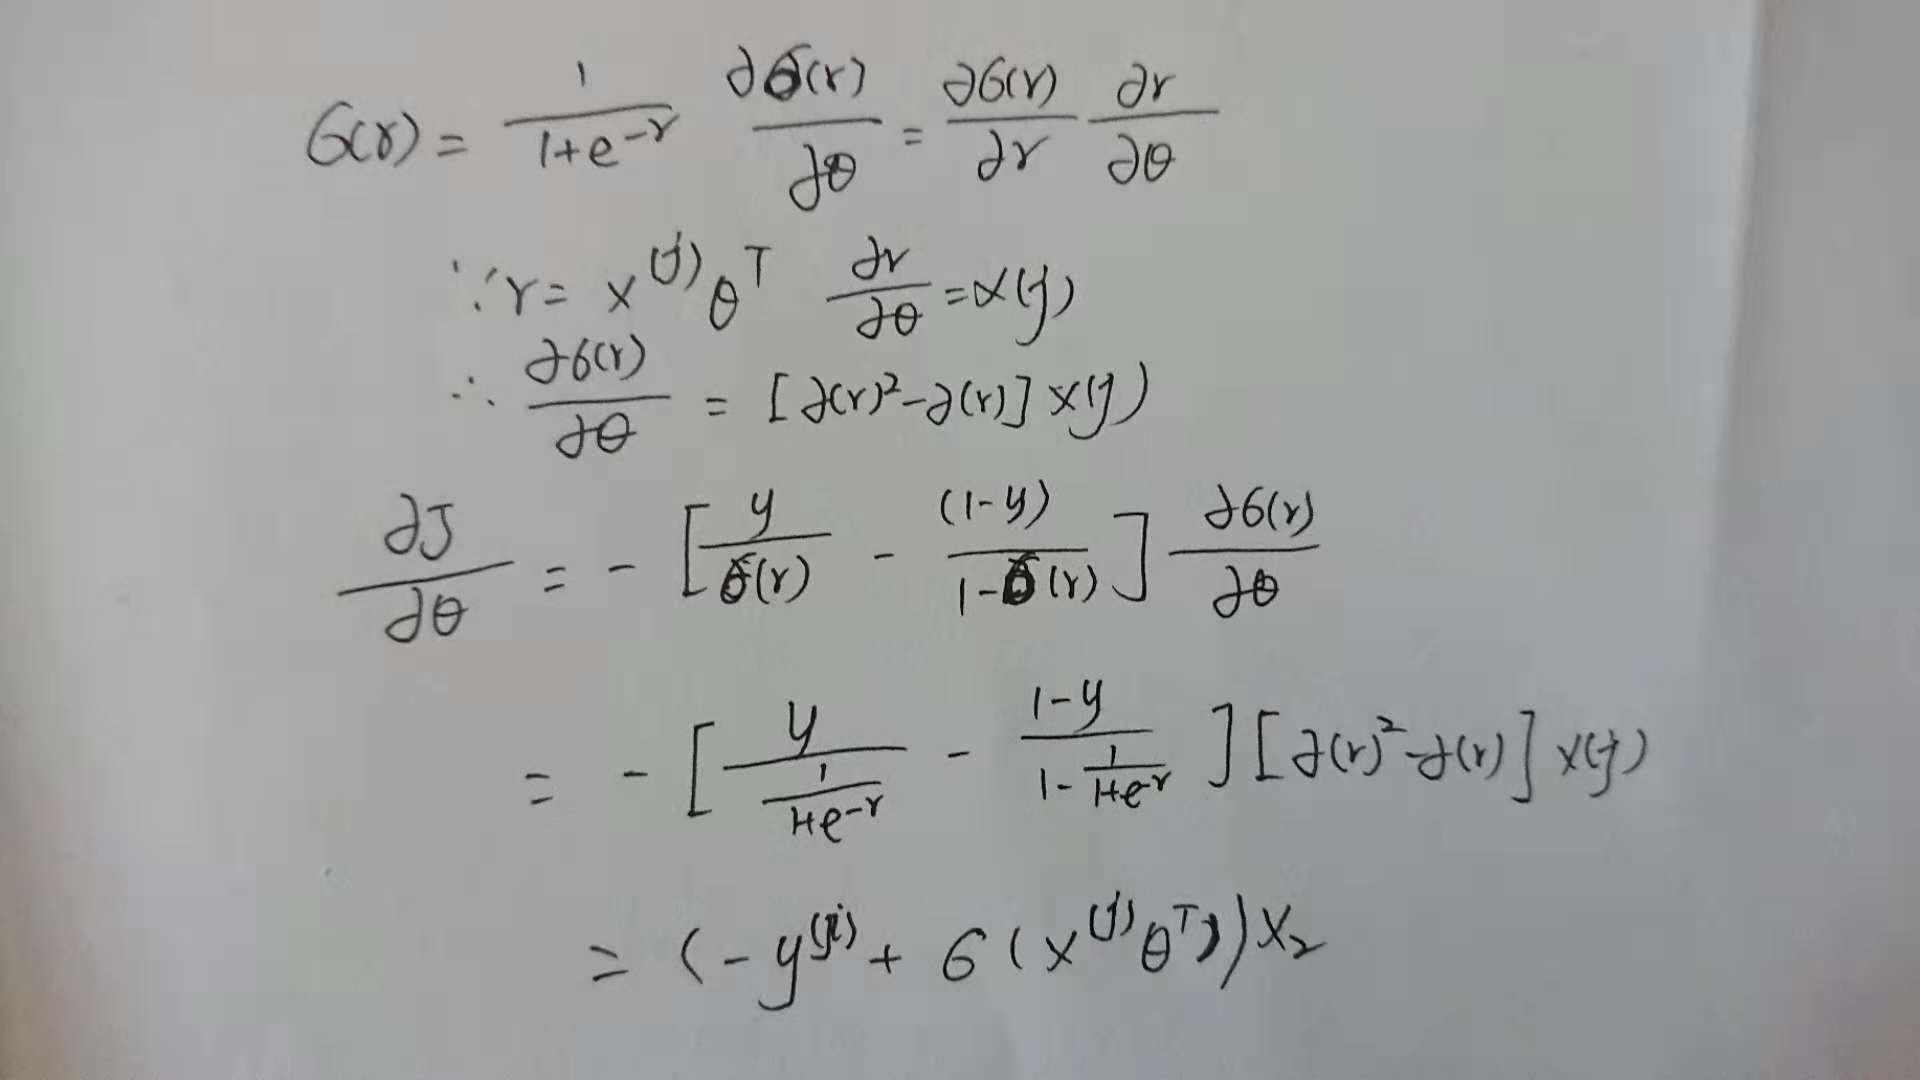 σ(r) = 1/(1+e^{-r})   ∂σ(r)/∂θ = ∂σ(r)/∂r ∂r/∂θ
∵ r = x^{(j)} θ^T   ∂r/∂θ = x(j)
∴ ∂σ(r)/∂θ = [∂(r)²-∂(r)] x(j)
∂J/∂θ = - [ y/σ(r) - (1-y)/(1-σ(r)) ] ∂σ(r)/∂θ
= - [ y/(1/(1+e^{-r})) - (1-y)/(1-1/(1+e^{-r})) ] [∂(r)²-∂(r)] x(j)
= (-y^{(j)} + σ(x^{(j)} θ^T)) x₂